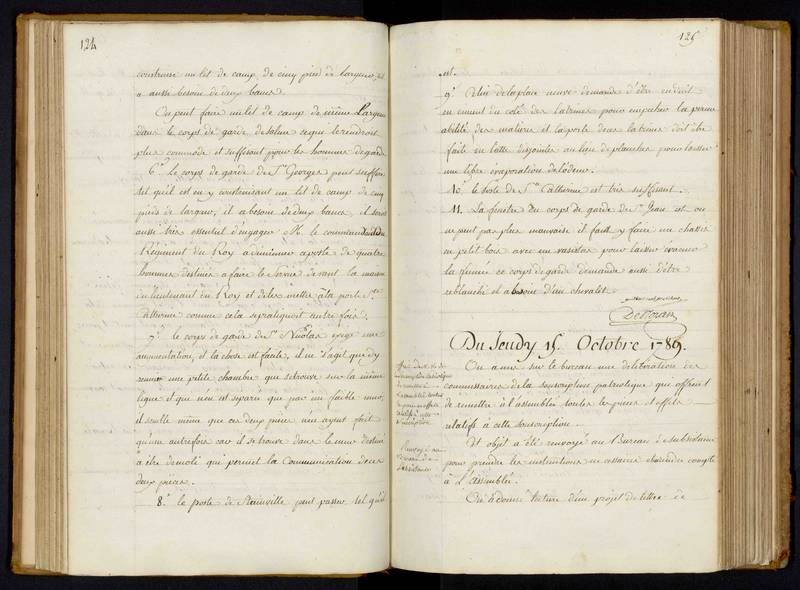 124
construire un lit de camp de cinq pied de largeur, il
a aussi besoin de deux bancs.
On peut faire un lit de camp de même Largeur
dans le corps de garde de saline ce qui le rendroit
plus commode et suffisant pour les hommes de garde
6.° le corps de garde de S.t Georges peut suffire
tel qu'il est en y construisant un lit de camp de cinq
pieds de largeur, il a besoin de deux bancs, il seroit
aussi très essentiel d'engager M. le commandant du
Régiment du Roy a diminuer a poste de quatre
hommes destinés a faire le service devant la maison
du lieutenant du Roy et de les mettre à la porte S.te
Catherine comme cela se pratiquoit autre fois.
7.° le corps de garde de S.t Nicolas exige une
augmentation, et la chose est facile, il ne s'agit que d'y
reunir une petite chambre qui se trouve sur la même
ligne et qui n'en est séparée que par un faible mur,
il semble même que ces deux pièces n'en ayent fait
qu'une autrefois car il se trouve dans le mur destiné
à être demoli qui permet la Communication de ces
deux pièces.
8.° le poste de Stainville peut passer tel qu'il
125
est.
9.° Celui de la place neuve demande d'être enduit
en ciment du coté des latrines pour empecher la perme
abilité des matieres et la porte des latrines doit être
faite en latte disjointes au lieu de planches pour laisser
une libre evaporation de l'odeur.
10. le poste de S.te Catherine est très suffisant.
11. La fenêtre du corps de garde de S.t Jean est on
ne peut pas plus mauvaise il faut y faire un chassis
a petit bois avec un vasistas pour laisser evacuer
la fumée ce corps de garde demande aussi d'être
reblanchi et a besoin d'un chevalet
Du Jeudy 15. Octobre 1789.
On a mis sur le bureau une déliberation des
commissaires de la souscription patriotique qui offrent
de remettre à l'assemblée toutes les pièces et effets
relatifs à cette Souscription.
Cet objet a été renvoyé au Bureau de subsistance
pour prendre les instructions necessaires et en rendre compte
à L'assemblée.
On a donné lecture d'un projet de lettre de